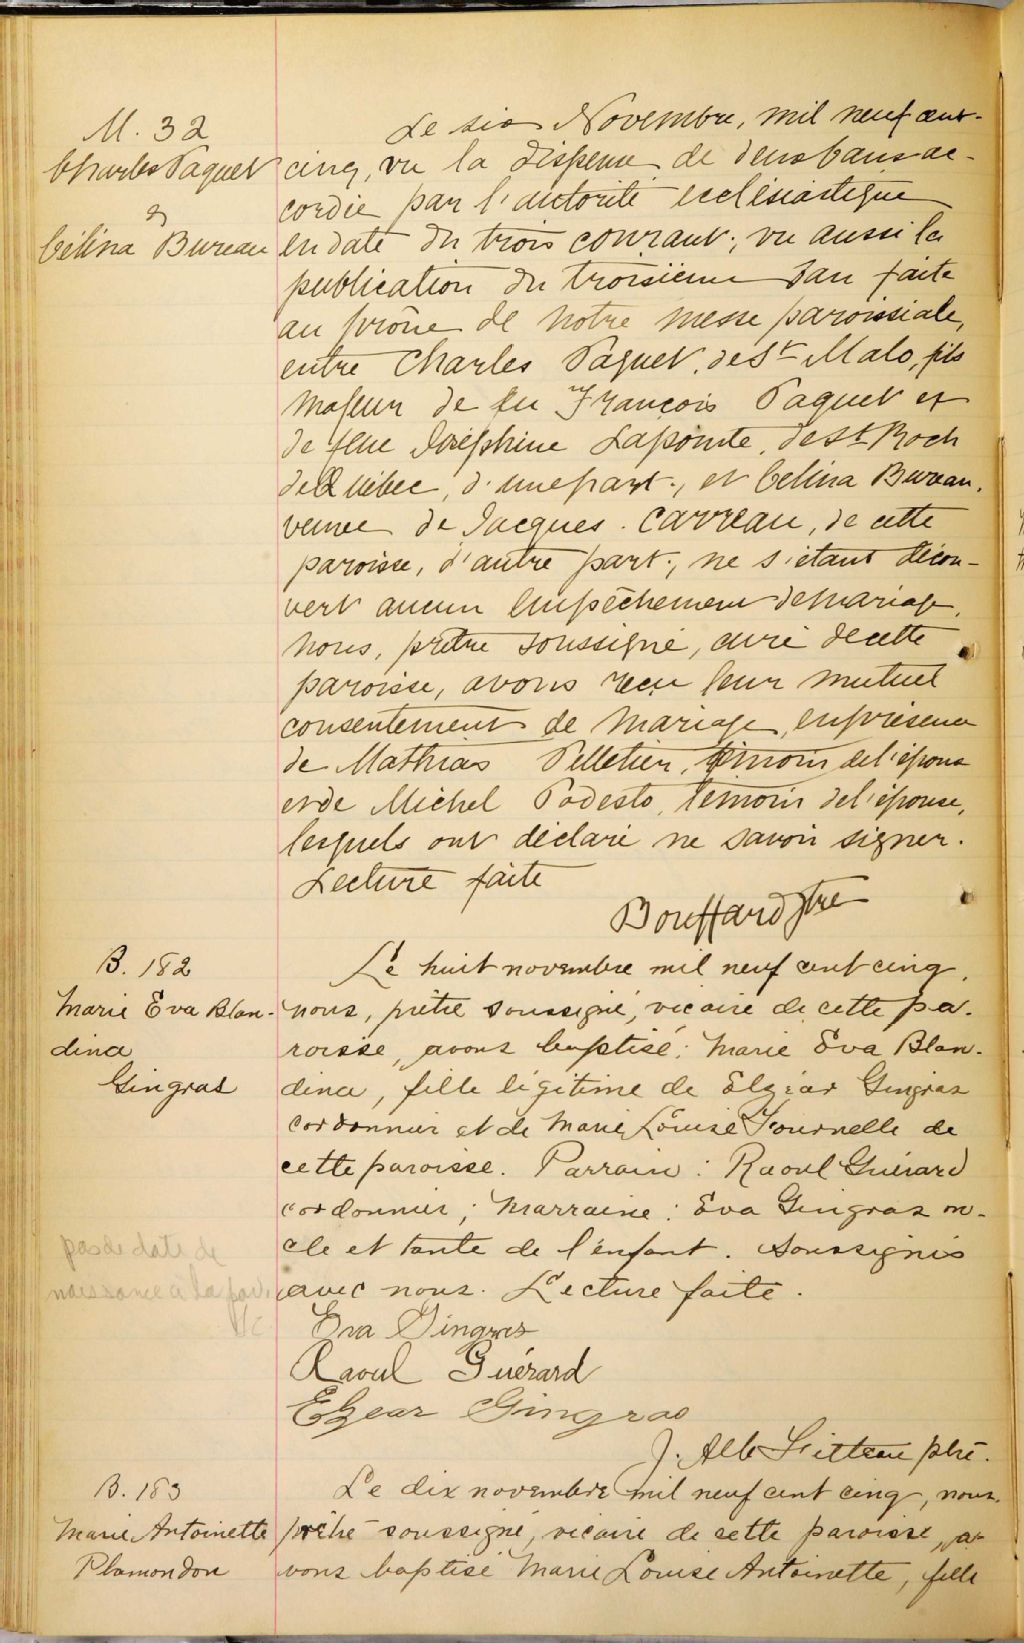 M. 32
Charles Paquet
&
Célina Bureau
Le six Novembre, mil neuf cent-
cinq, vu la dispense de deux bans ac-
cordée par l'autorité ecclésiastique
en date du trois courant; vu aussi la
publication du troisième ban faite
au prône de notre messe paroissiale,
entre Charles Paquet, de St Malo, fils
majeur de feu François Paquet et
de feue Joséphine Lapointe, de St Roch
de Québec, d'une part; et Célina Bureau,
veuve de Jacques Carreau, de cette
paroisse, d'autre part; ne s'étant décou-
vert aucun empêchement de mariage,
nous, prêtre soussigné, curé de cette
paroisse, avons reçu leur mutuel
consentement de mariage, en présence
de Mathias Pelletier, témoin de l'époux
et de Michel Podesto, témoin de l'épouse,
lesquels ont déclaré ne savoir signer.
Lecture faite
Bouffard ptre
B. 182
Marie Eva Blan-
dina
Gingras
Le huit novembre mil neuf cent cinq,
nous, prêtre soussigné, vicaire de cette pa-
roisse, avons baptisé: Marie Eva Blan-
dina, fille légitime de Elzéar Gingras
cordonnier et de Marie Louise Fournelle de
cette paroisse. Parrain: Raoul Guérard
cordonnier; Marraine: Eva Gingras on-
cle et tante de l'enfant. Soussignés
avec nous. Lecture faite.
pas de date de
naissance à la
Eva Gingras
Raoul Guérard
Elzear Gingras
J. Alb ptre.
B. 183
Marie Antoinette
Plamondon
Le dix novembre mil neuf cent cinq, nous,
prêtre soussigné, vicaire de cette paroisse, a-
vons baptisé Marie Louise Antoinette, fille